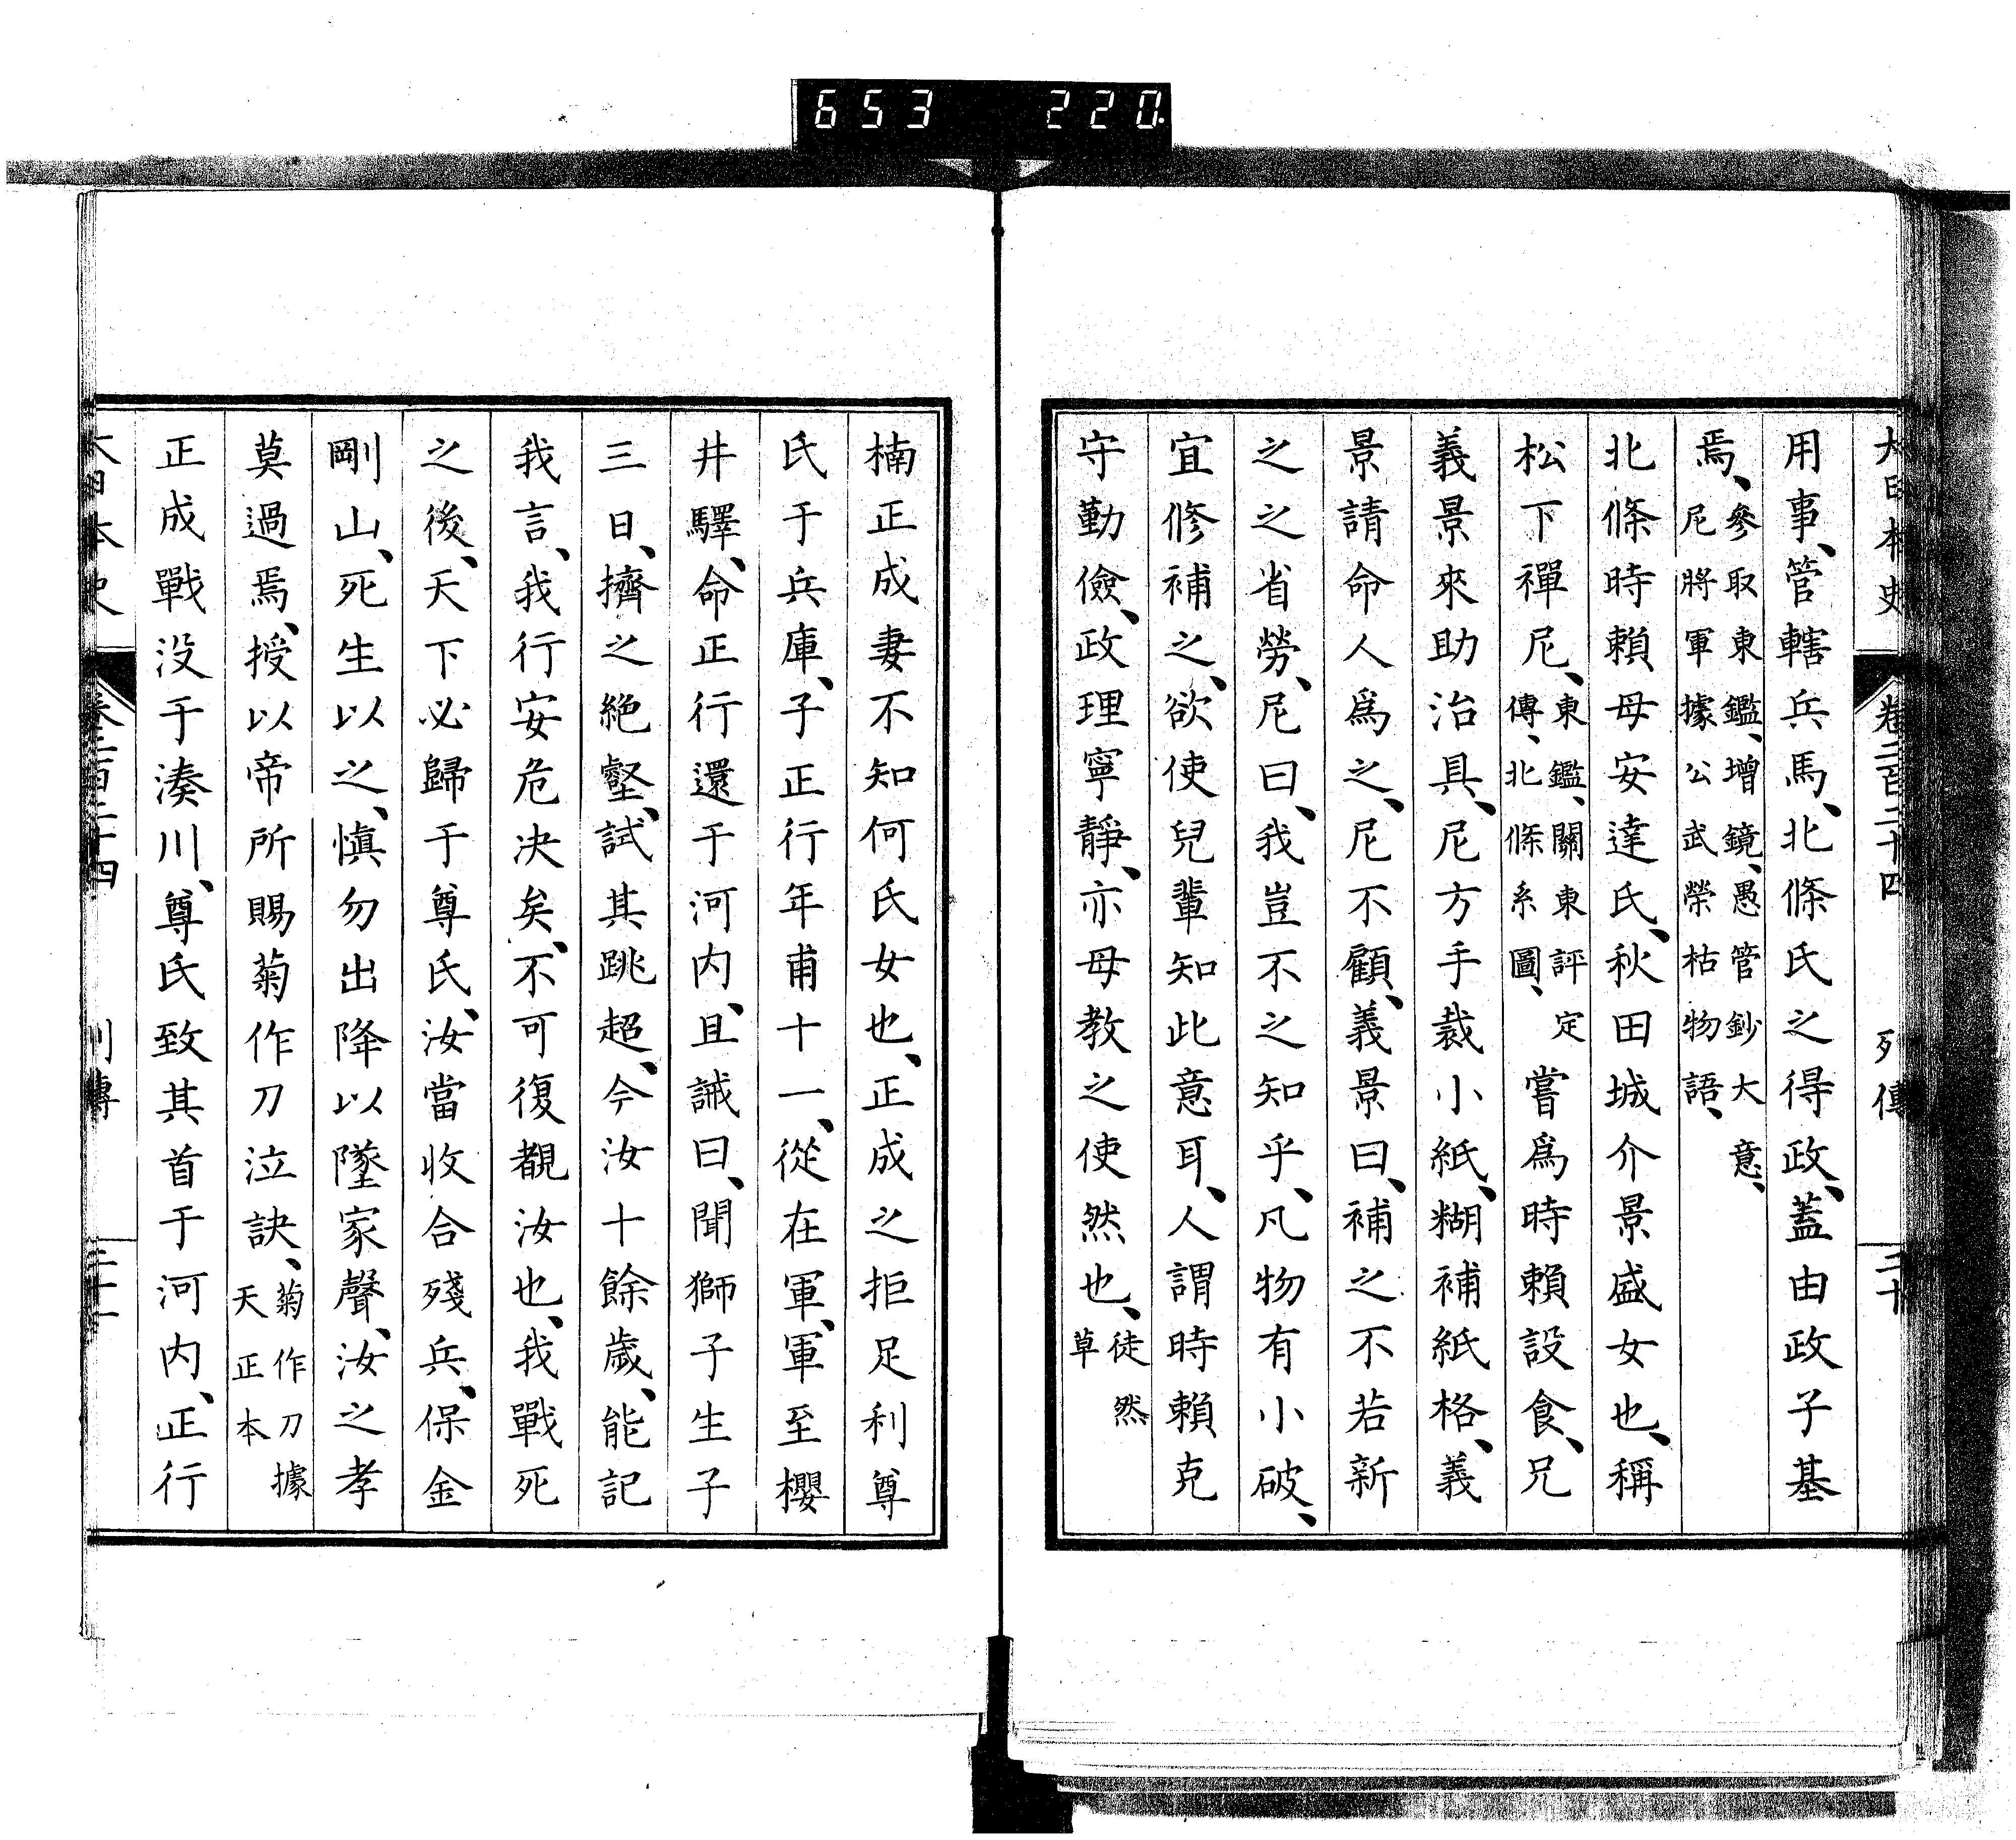 653 220
大日本史 卷二百二十四 列傳 二十
用事、管轄兵馬、北條氏之得政、蓋由政子基
焉、參取東鑑、增鏡、愚管鈔大意、
尼將軍據公武榮枯物語、
北條時賴母安達氏、秋田城介景盛女也、稱
松下禪尼、東鑑、關東評定
傳、北條系圖、嘗爲時賴設食、兄
義景來助治具、尼方手裁小紙、糊補紙格、義
景請命人爲之、尼不顧、義景曰、補之不若新
之之省勞、尼曰、我豈不之知乎、凡物有小破、
宜修補之、欲使兒輩知此意耳、人謂時賴克
守勤儉、政理寧靜、亦母教之使然也、徒然
草
楠正成妻不知何氏女也、正成之拒足利尊
氏于兵庫、子正行年甫十一、從在軍、軍至櫻
井驛、命正行還于河内、且誡曰、聞獅子生子
三日、擠之絶壑、試其跳超、今汝十餘歲、能記
我言、我行安危决矣、不可復覩汝也、我戰死
之後、天下必歸于尊氏、汝當收合殘兵、保金
剛山、死生以之、愼勿出降以墜家聲、汝之孝
莫過焉、授以帝所賜菊作刀泣訣、菊作刀據
天正本
正成戰没于湊川、尊氏致其首于河内、正行
大日本史 卷二百二十四 列傳 二十一